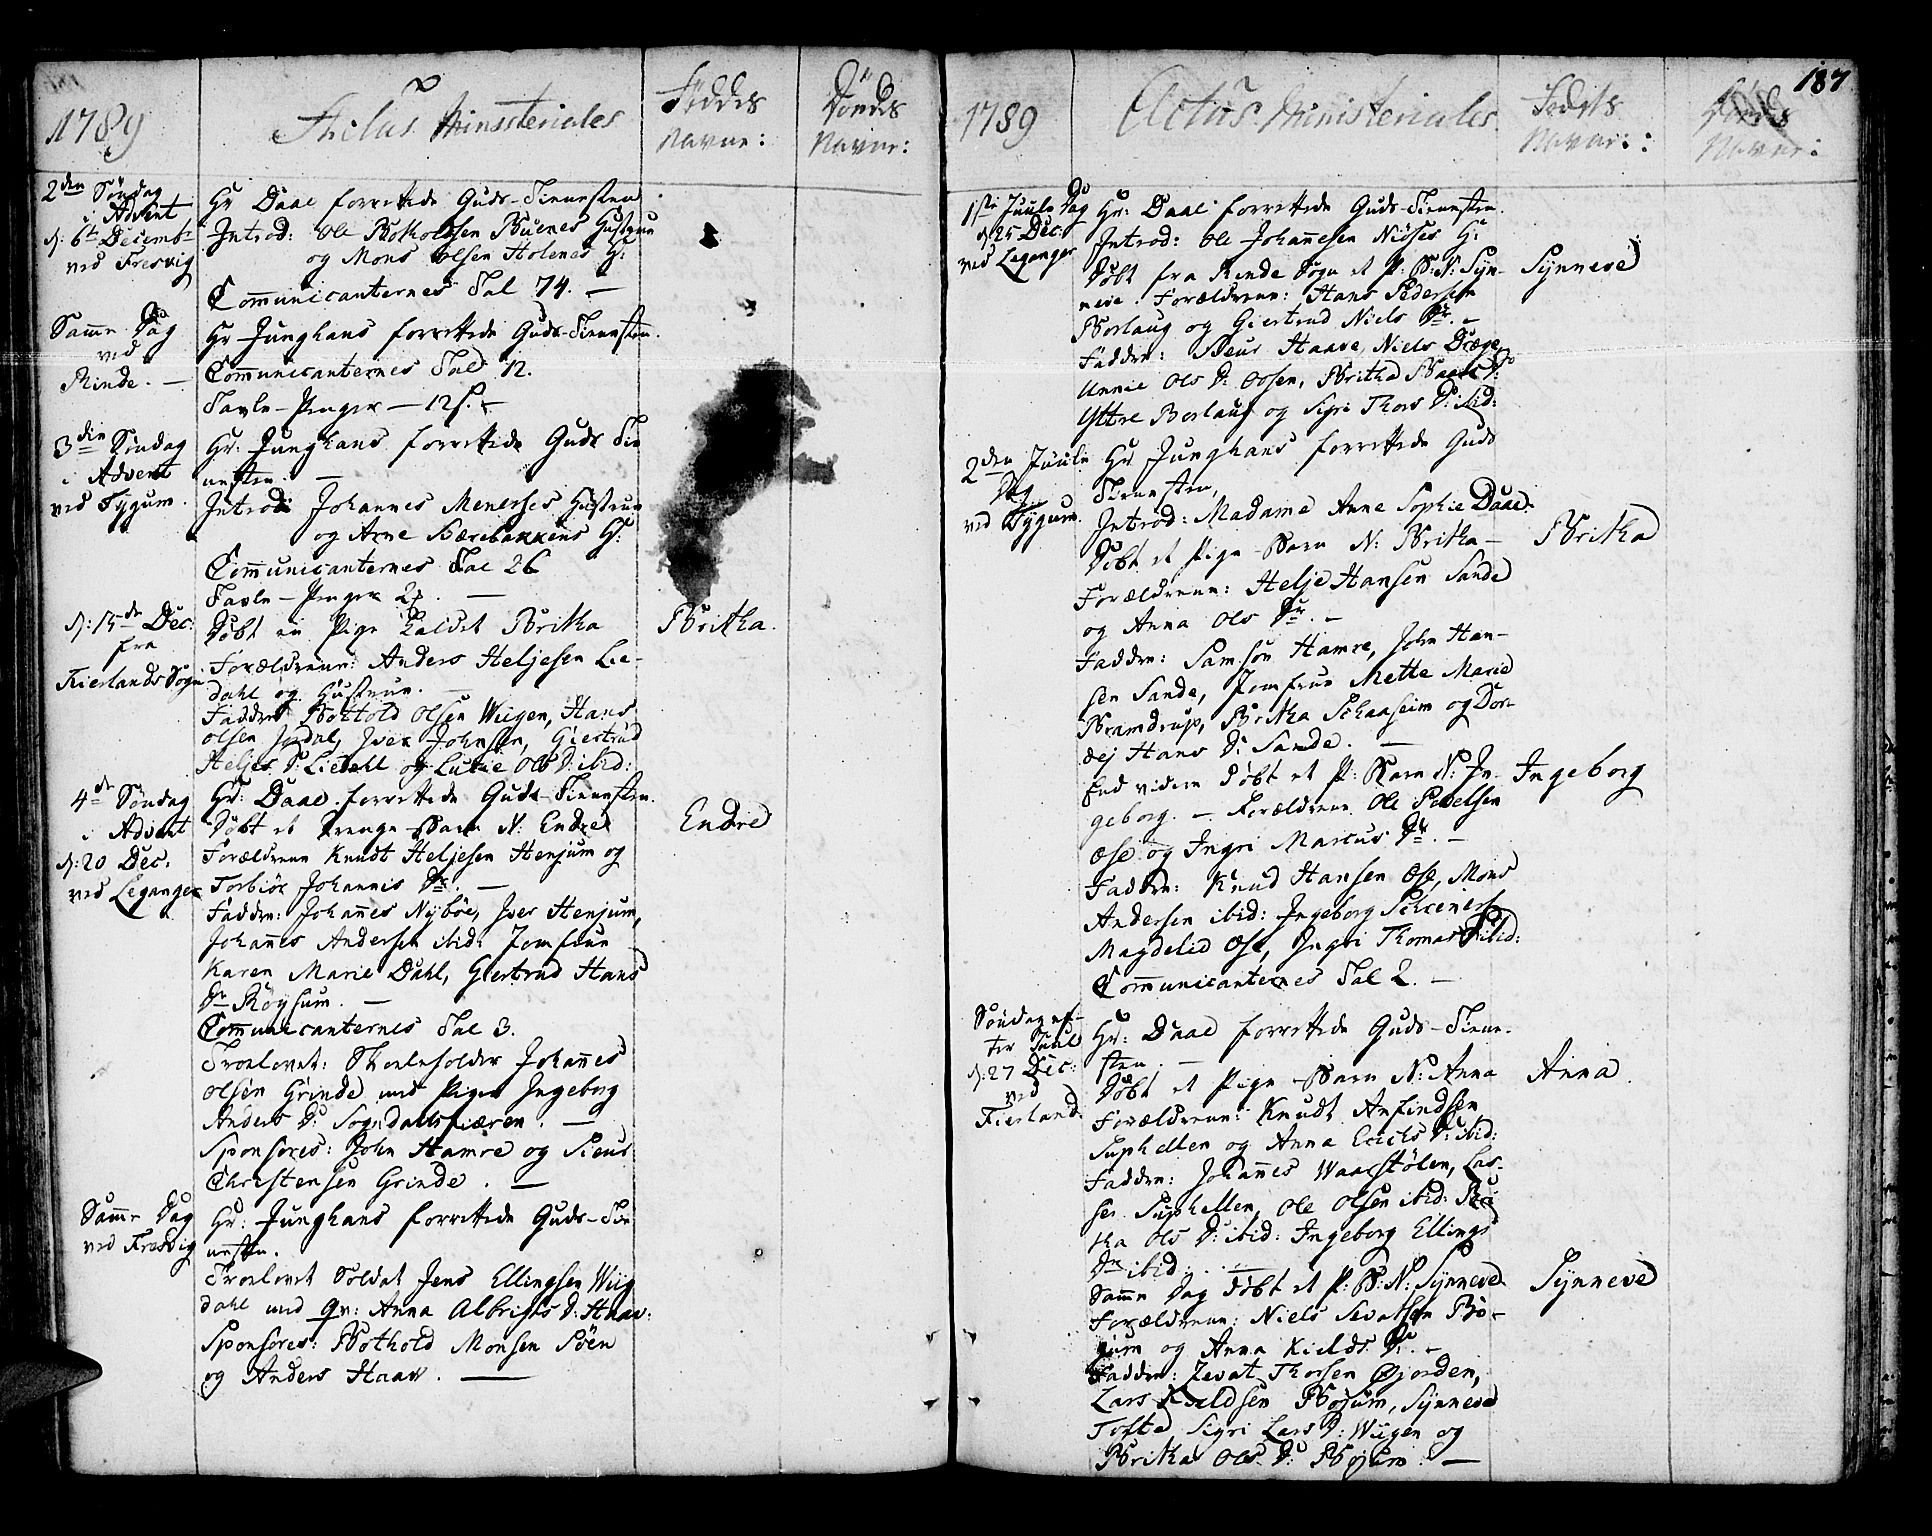 1789
Actus Ministeriales
Föddes
Navne:
Dödes
Navne:
2den Söndag
i Advent
d: 6te Decembr
ved Fresvig
Hr Daae forrettede Guds-Tienesten
Introd: Ole Botholdsen Buenes Hustrue
og Mons Olsen Holenes H:
Communicanternes Tal 74. —
Samme Dag
ved
Rinde. —
Hr Junghans forrettede Guds-Tienesten.
Communicanternes Tal 12.
Tavle-Penger — 12 s. —
3die Söndag
i Advent
ved Tygum.
Hr: Junghans forrettede Guds Tie
nesten. —
Introd: Johannes Menesses Hustrue
og Arne Bærebakkens H:
Communicanternes Tal 26
Tavle-Penger —
d: 15de Dec:
fra
Fierlands Sogn
Döbt en Pige kaldet Britha
Forældrene: Anders Heljesen Lie-
dahl og Hustrue. —
Faddre: Bothold Olsen Wiigen, Hans
Olsen Jordal, Iver Johnsen, Giertrud
Heljes D: Liedahl og Lucie Ols D: ibid:
Britha.
4de Söndag
i Advent
d: 20 Dec.
ved Leganger
Hr: Daae forrettede Guds-Tienesten.
Döbt et Drenge-Barn N: Endre
Forældrene Knudt Heljesen Henjum og
Torbiör Johannis Dr. —
Faddre: Johannes Nyböe, Iver Henjum,
Johannes Andersen ibid: Jomfrue
Karen Marie Dahl, Giertrud Hans
Dr Röysum. —
Communicanternes Tal 3.
Troelovet: Skoeleholder Johannes
Olsen Grinde med Pigen Ingeborg
Anders D: Sogndalsfiæren. —
Sponsores: John Hamre og Siur
Christensen Grinde. —
Endre
Samme Dag
ved Fresvig
Hr: Junghans forrettede Guds-Tie
nesten.
Troelovet Soldat Jens Ellingsen Wiig
dahl med Qv: Anna Albrigts D: Haav:
Sponsores: Bothold Monsen Söen
og Anders Haav. —
187
1789
Actus Ministeriales
Födtes
Navne:
Dödes
Navne:
1ste Juule Dag
d: 25 Dec:
ved Leganger
Hr: Daae forrettede Guds-Tienesten.
Introd: Ole Johannesen Niöses H:
Döbt fra Rinde Sogn et P: B: N: Syn-
neve. Forældrene: Hans Pedersen
Borlaug og Giertrud Niels Dr. —
Faddre: Siur Haave, Niels Dræge
Annie Ols D: Ossen, Britha Baars D:
Yttre Borlaug og Sigri Thors D: ibid:
Synneve
2den Juule
Dag
ved Tygum.
Hr Junghans forrettede Guds
Tienesten,
Introd: Madame Anne Sophie Daae
Döbt et Pige-Barn N: Britha —
Forældrene: Helje Hansen Sande
og Anna Ols Dr. —
Faddre: Samson Hamre, John Han-
sen Sande, Jomfrue Mette Marie
Bramdrup, Britha Schaasheim og Dor-
dej Hans D: Sande. —
End videre döbt et P: Barn N: In-
geborg. — Forældrene Ole Povelsen
Ose og Ingri Marcus Dr. —
Faddre: Knud Hansen Ose, Mons
Andersen ibid: Ingeborg Schreiners
Magdelid Ose, Ingri Thomas D: ibid:
Communicanternes Tal 2. —
Britha
Ingeborg
Söndag ef-
ter Juul
d: 27 Dec:
ved
Fierland.
Hr: Daae forrettede Guds-Tiene-
sten. —
Döbt et Pige-Barn N: Anna
Forældrene: Knudt Anfindsen
Suphellen og Anna Erichs D: ibid:
Faddre: Johannes Waarstölen, Las-
ses Suphellen, Ole Olsen ibid: Bri
tha Ols D: ibid: Ingeborg Ellings
Dr ibid: . —
Samme Dag döbt et P: B: N: Synneve
Forældrene: Niels Sevatsen Bö-
jum og Anna Kields Dr. —
Faddre: Zevat Thorsen Öjorden,
Lars Kieldsen Böjum, Synneve
Tofte, Sigri Lars D: Wiigen og
Britha Ols D: Böjum. —
Anna.
Synneve